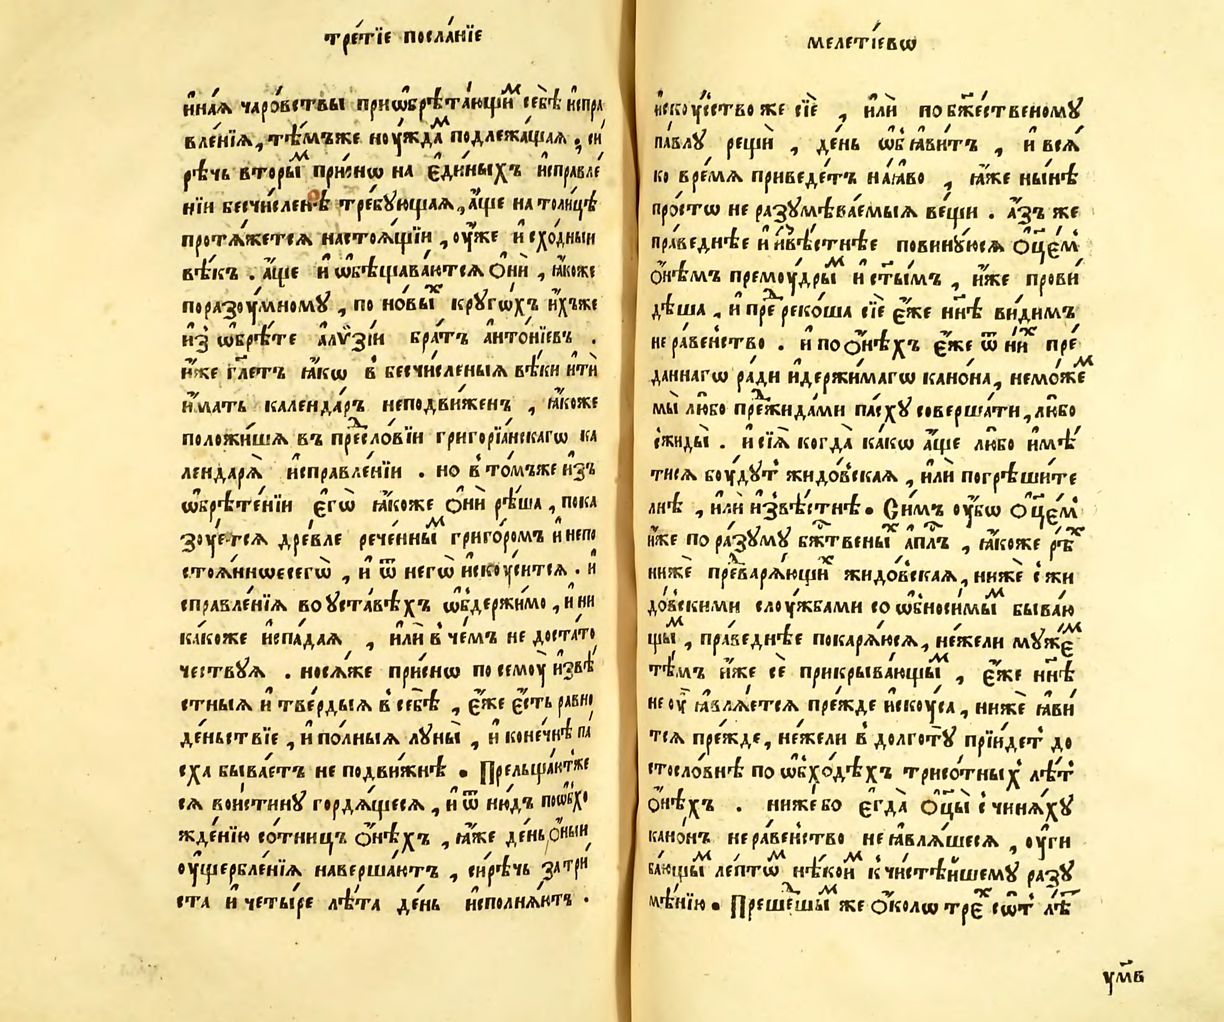 тре́тїе посла́нїе
и҆на́ѧ чаро́вствы приѡбрѣта́ющиⷨ себѣ̀ и҆спра
вле́нїѧ, тѣ́мъже ноу́ждаⷨ подлежа́щаѧ, си́
рѣчь вторы́ⷨ при́снѡ на є҆ди́ныхъ и҆справле́
нїи бесчи́сленѣ тре́бующаѧ, а҆́ще на толи́цѣ
протѧ́жетсѧ настоѧ́щїи, оу҆́же и҆ схо́дныи
вѣ́къ. а҆́ще и҆ ѡ҆бѣщава́ютсѧ Ѻ҆нѝ, ꙗ҆́коже
поразоу́мному, по но́выⷯ круго́хъ и҆́хъже
и҆зѡбрѣ́те алѵ́зїи бра́тъ анто́нїевъ.
и҆́же гл҃етъ ꙗ҆́кѡ в бесчи́сленыѧ вѣ́ки и҆тѝ
и҆́мать календа́ръ неподви́женъ, ꙗ҆́коже
положи́шѧ въ преⷣсло́вїи григорїа́нскагѡ ка
лендарѧ̀ и҆справле́нїи. но в то́мъже и҆зъ
ѡ҆брѣте́нїи є҆гѡ̀ ꙗ҆́коже Ѻ҆нѝ рѣ́ша, пока
зоуетсѧ дре́вле рече́нныⷨ григо́ромъ и҆ непо
стоѧ́нноесегѡ̀, и҆ ѿ негѡ̀ и҆скоу́ситсѧ. и҆
справле́нїѧ во уста́вѣхъ ѡ҆бдержи́мо, и҆ ни
ка́коже и҆спа́даѧ, и҆лѝ в че́мъ не доста́то
чествуѧ. носѧ́же при́снѡ по семоу̀ и҆звѣ́
стныѧ и҆ тве́рдыѧ в себѣ̀, є҆́же є҆́сть равно
де́ньствїе, и҆ по́лныѧ луны̀, и҆ коне́чнѣ па́
сха быва́етъ не подви́жнѣ. Прельща́ютже
сѧ вои́стину гордѧ́щесѧ, и҆ ѿ ню́дъ поѡбхо
жде́нїю со́тницъ Ѻ҆нѣ́хъ, ꙗ҆́же де́нь ѻ҆́ныи
оу҆щербле́нїѧ наверша́ютъ, си́рѣчь за три́
ста и҆ четы́ре лѣ́та де́нь и҆сполнѧ́ютъ.
меле́тїевѡ
и҆скоу́ство же сїѐ, и҆лѝ по бж҃е́ственому
па́влу рещѝ, де́нь ѡ҆б̾ꙗ́витъ, и҆ всѧ́
ко вре́мѧ приведе́тъ наꙗ́во, ꙗ҆́же ны́нѣ
про́стѡ не разумѣва́емыѧ ве́щи. а҆́зъ же
пра́веднѣе и҆ и҆звѣ́стнѣе повину́юсѧ Ѻ҆ц҃є́мⸯ
Ѻ҆нѣ́мъ премоу́дрыⷨ и҆ ст҃ы́мъ, и҆́же прови́
дѣша, и҆ преⷣреко́ша сїѐ є҆́же нн҃ѣ ви́димъ
не ра́венство. и҆ по Ѻ҆нѣ́хъ є҆́же ѿ ни́ⷯ пре́
даннагѡ ра́ди и҆ держи́магѡ кано́на, немо́жеⷨ
мы̀ любо преⷣжида́ми па́сху соверша́ти, лю́бо
с жиды̀. и҆ сїѧ̀ когда̀ ка́кѡ а҆́ще лю́бо и҆мѣ́
тисѧ боу́дутⸯ жидо́вскаѧ, и҆лѝ погрѣши́те
лнѣ, и҆лѝ и҆звѣ́стнѣ. Си́мъ оу҆́бѡ Ѻ҆ц҃є́мⸯ
и҆́же по ра́зуму бжⷭ҇твены́ⷯ а҆пⷭ҇лъ, ꙗ҆́коже рѣ́ⷯ
нижѐ преⷣварѧ́ющиⷯ жидо́вскаѧ, нижѐ с жи
до́вскими слоу́жбами со ѡ҆бноси́мыⷨ быва́ю
щыⷨ, пра́веднѣе покарѧ́юсѧ, не́жели муже́ⷨ
тѣ́мъ и҆́же сѐ прикрыва́ющыⷨ, є҆́же нн҃ѣ
не оу҆̀ ꙗ҆влѧ́етсѧ пре́жде и҆скоу́са, нижѐ ꙗ҆ви́
тсѧ пре́жде, не́жели в долготу̀ прїи́детⸯ до
стосло́внѣ по ѡ҆бхо́дѣхъ трисо́тныхⸯ лѣ́тⸯ
Ѻ҆нѣ́хъ. ниже бо є҆гда̀ Ѻ҆ц҃ы̀ с чинѧ́ху
кано́нъ не ра́венство не ꙗ҆влѧ́шесѧ, оу҆ги
ба́ющыⷨ лептѡⷨ нѣ́коиⷨ к чистѣ́йшему разу
мѣ́нїю. Преше́ⷣшыⷨ же Ѻ҆́колѡ тре́ⷯ сѡ́тⸯ лѣⷮ
у҃мв